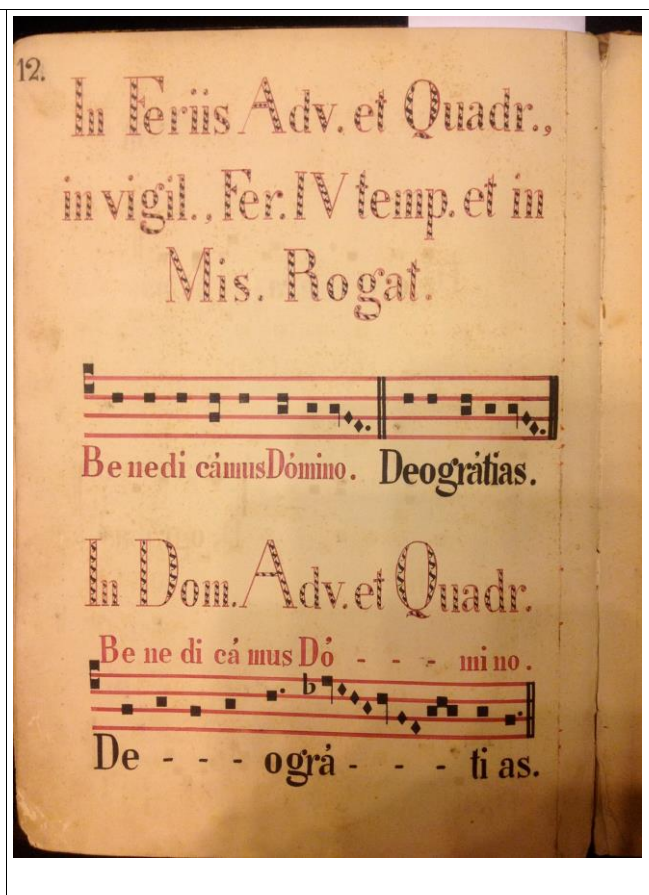 12.
In Feriis Adv. et Quadr.,
in vigil., Fer. IV temp. et in
Mis. Rogat.
Be nedi cámus Dómino. Deográtias.
In Dom. Adv. et Quadr.
Be ne di cá mus Dó - - - mi no.
De - - - ográ - - - ti as.